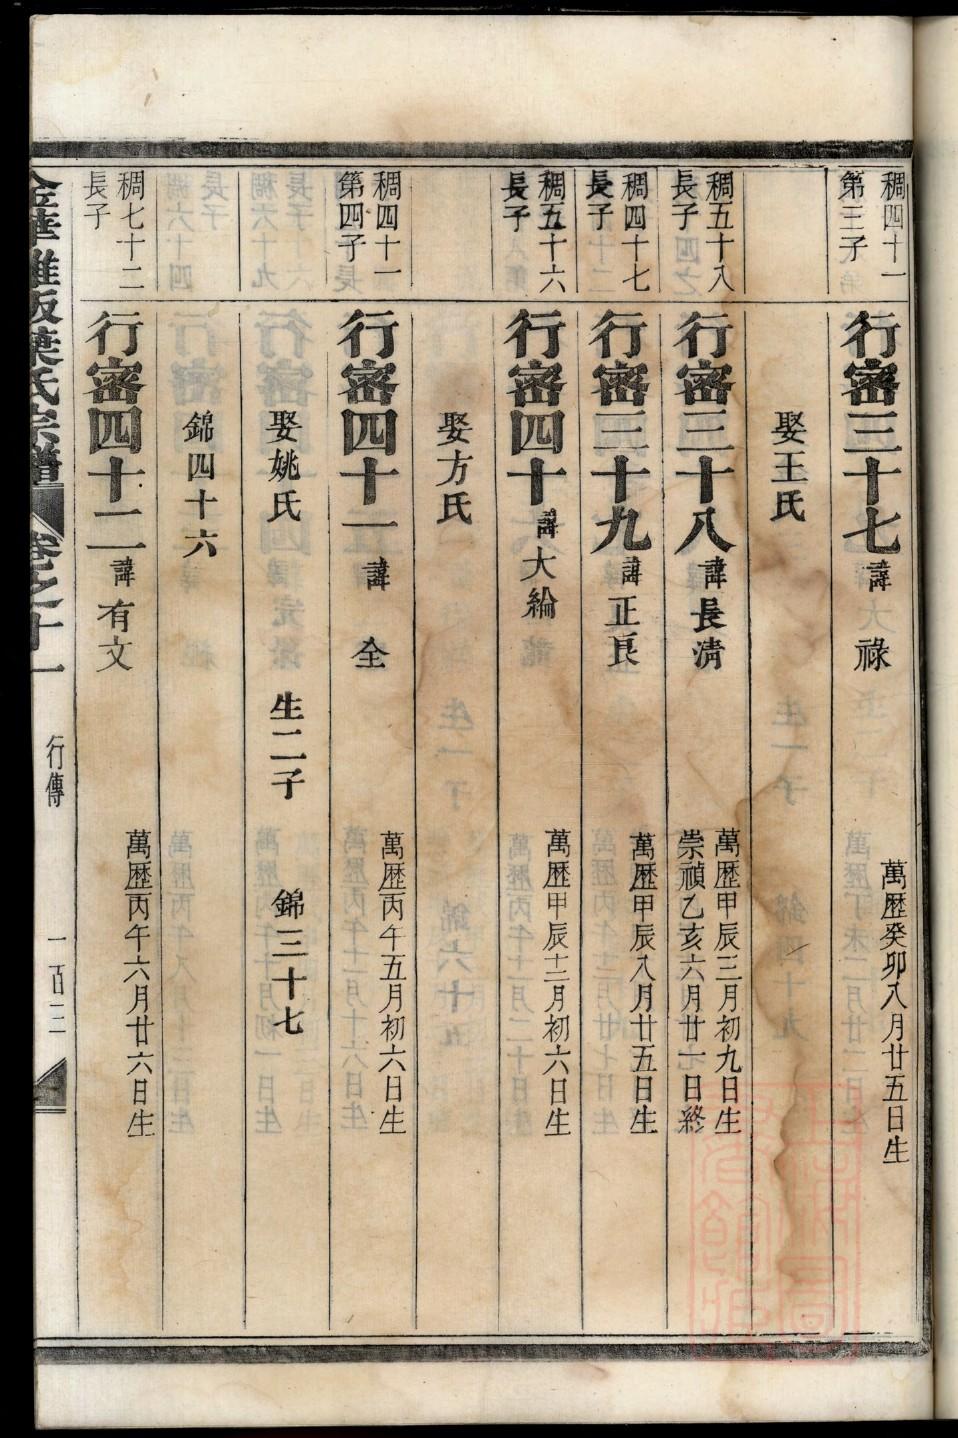 稠四十一
第三子
行密三十七 諱 祿
萬歷癸卯八月廿五日生
娶王氏
稠五十八
長子
行密三十八 諱長清
萬歷甲辰三月初九日生
崇禎乙亥六月廿一日終
稠四十七
長子
行密三十九 諱正良
萬歷甲辰八月廿五日生
稠五十六
長子
行密四十 諱大綸
萬歷甲辰十二月初六日生
娶方氏
稠四十一
第四子
行密四十一 諱 全
萬歷丙午五月初六日生
娶姚氏 生二子 錦三十七
錦四十六
稠七十二
長子
行密四十二 諱有文
萬歷丙午六月廿六日生
葉氏宗譜 卷之十一 行傳 一百三